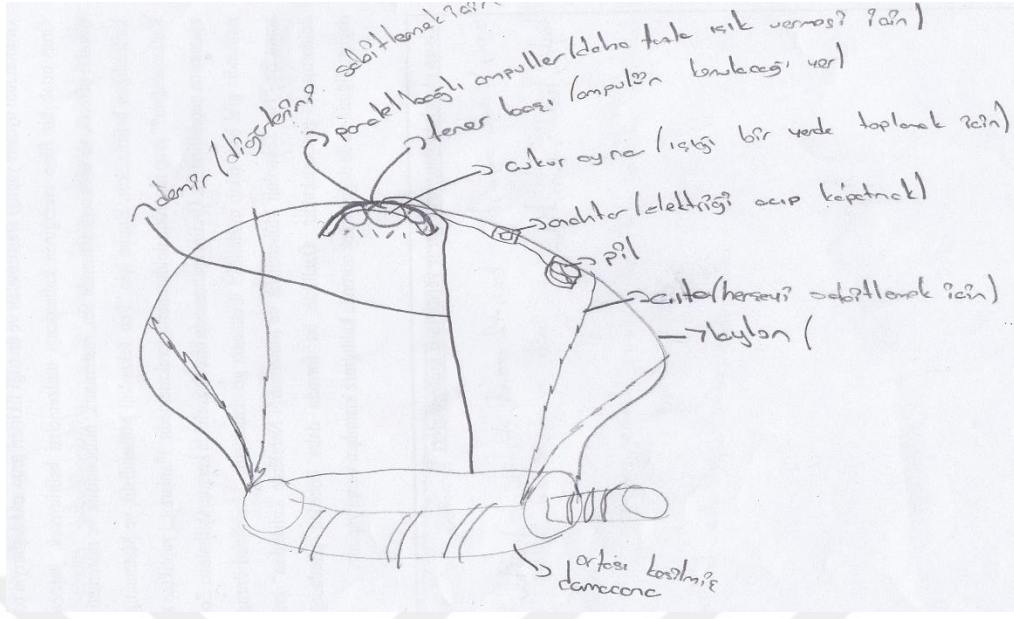 demir (diğerlerini sabitlemek için
paralel bağlı ampuller (daha fazla ışık vermesi için)
fener başı (ampulün konulacağı yer)
çukur ayna (ışığı bir yerde toplamak için)
anahtar (elektriği açıp kapatmak)
pil
çıta (herşeyi sabitlemek için)
naylon (
ortası kesilmiş
damacana